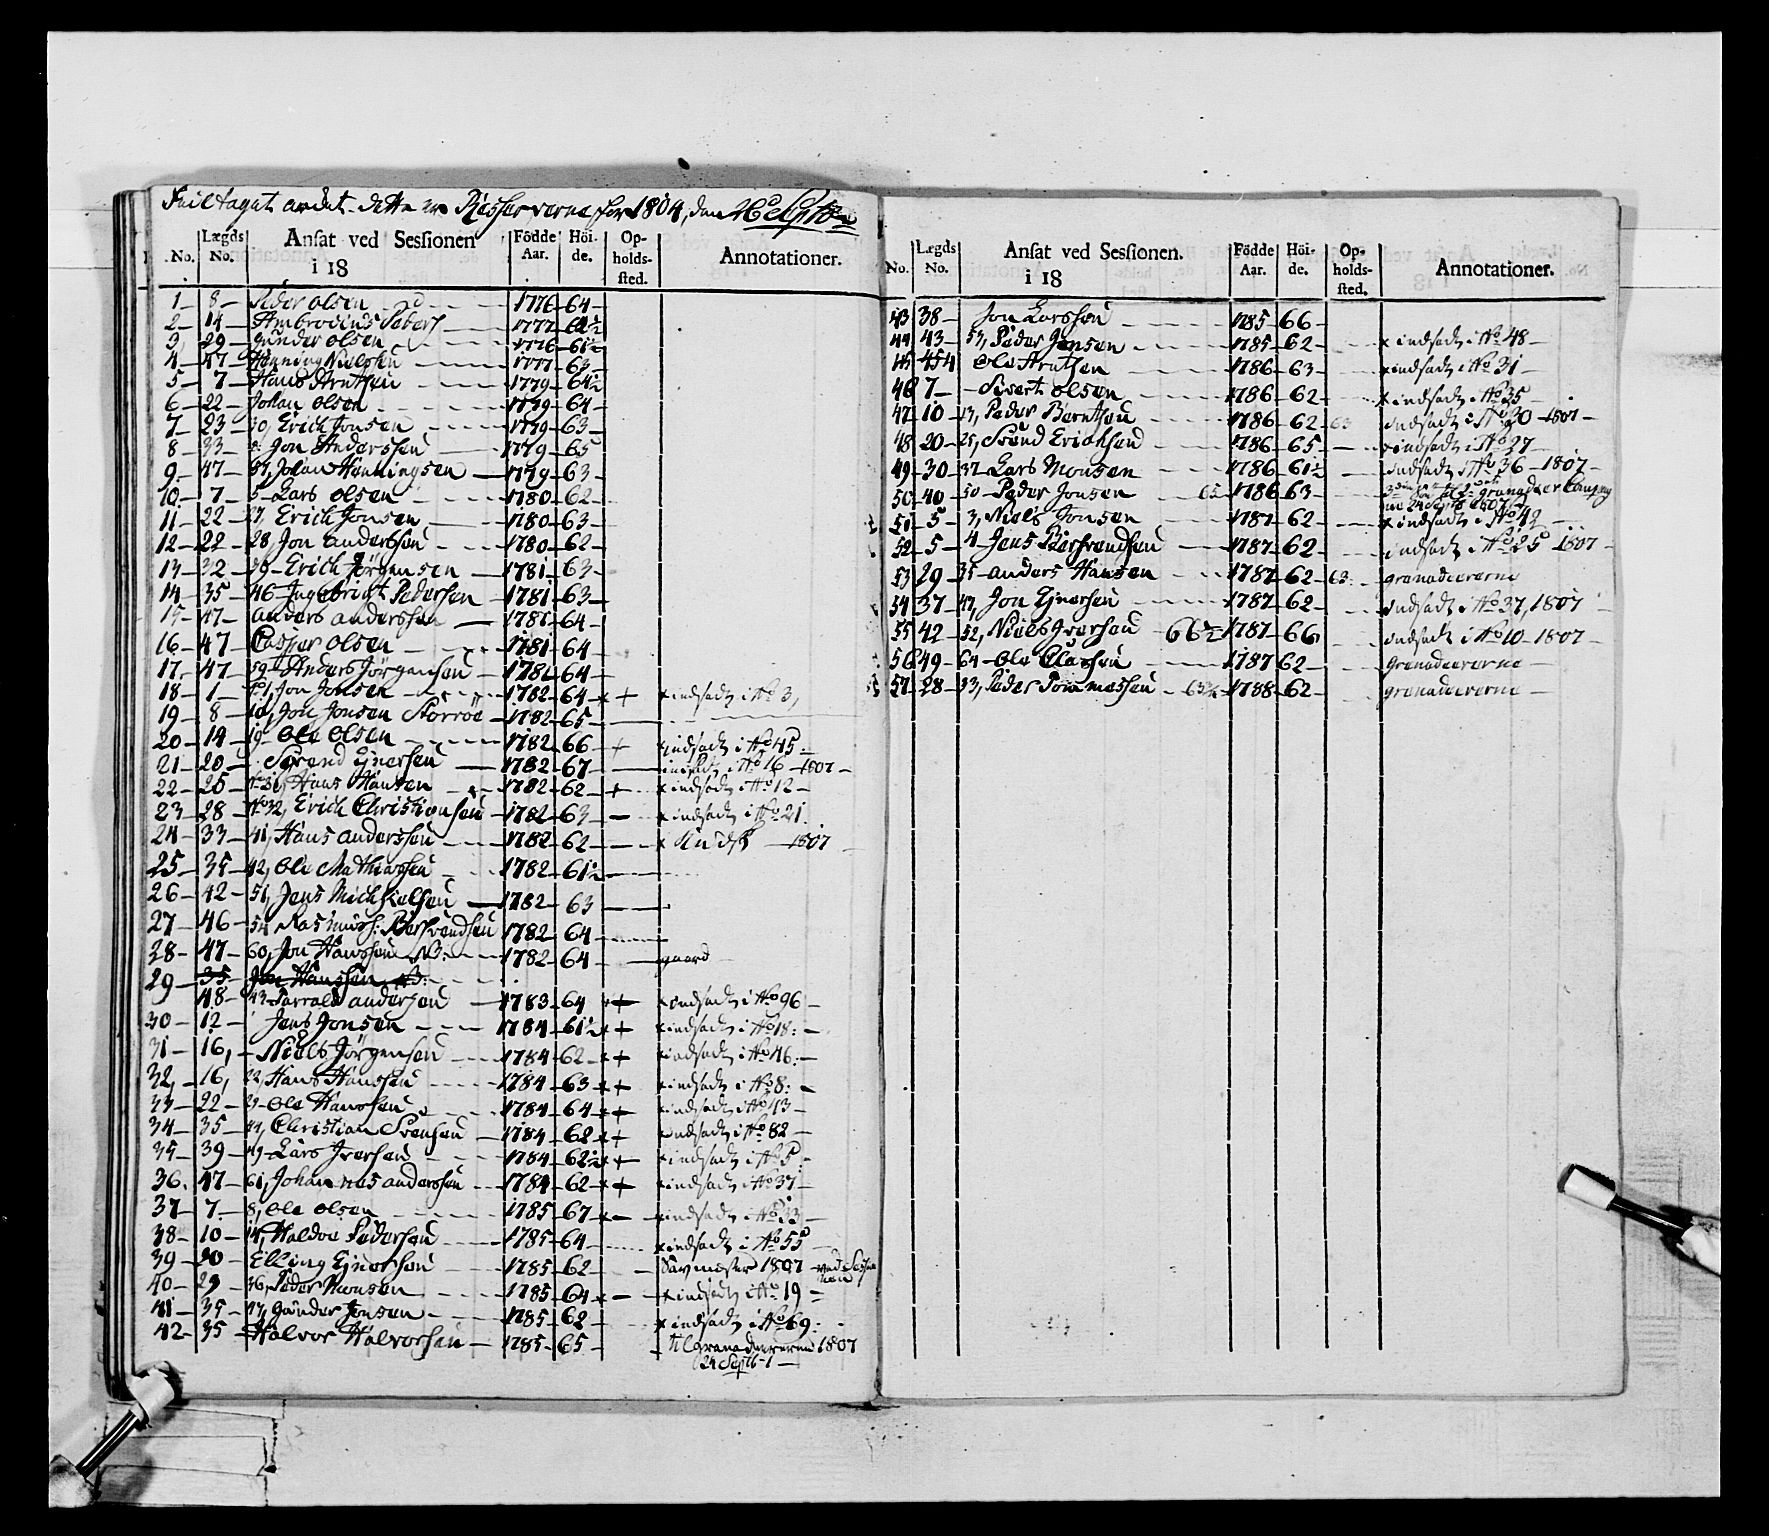 Feil tagut andet. dette er Resserverne for 1804, den 26 Septbr
No. Lægds No. Ansat ved Sessionen i 18 Födde Aar. Höi-de. Op-holds-sted. Annotationer.
1 - 8 - Peder Olsen - 1776 - 64 -
2 - 14 - Ambrosius Peders - 1777 - 62½
3, 29 - Gunder Olsen 1776 - 61½
4 - 47 - Henning Nielssen - 1777 - 63 -
5 - 7 - Hans Arntsen - 1779 - 64½
6 - 22 - Johan Olsen - 1779 - 64 -
7 - 23 - 30, Erich Jonsen - 1779 - 63 -
8 - 33 - Jon Anderssen - 1779 - 65
9 - 47 - 57, Johan Henningsen - 1779 - 63 -
10 - 7 - 5 - Lars Olsen - 1780 - 62 -
11 - 22 - 27, Erich Jonsen - 1780 - 63 -
12 - 22 - 28 Jon Anderssen - 1780 - 62 -
13 - 32 - 39 - Erich Jörgensen - 1781 - 63 -
14 - 35 - 46 - Ingebricht Pedersen - 1781 - 63 -
15 - 47 - Anders Anderssen - 1781 - 64 -
16 - 47 - Casper Olsen - 1781 - 64
17 - 47 - 59 - Anders Jörgensen - 1781 - 64 -
18 - 1 - Jon Jonsen - 1782 - 64 - x + x indsadt i No 3,
19 - 8 - 10, Jon Jonsen Storröe - 1782 - 65 -
20 - 14 - 19 - Ole Olsen - 1782 - 66 + x indsadt i No 45 -
21 - 20 - Svend Ejnersen - 1782 - 67 - indsadt i No 16 - 1807 -
22 - 25 - No 31, Hans Hansen - 1782 - 62 - + x indsadt i No 12 -
23 - 28 - No 32, Erich Christiansen - 1782 - 63 - x indsadt i No 21.
24 - 33 - 41, Hans Anderssen - 1782 - 62 - x 1807
25 - 35 - 42, Ole Mathiassen - 1782 - 61½ -
26 - 42 - 51, Jens Michkelsen - 1782 - 63 -
27 - 46 - 54 Rasmus: Bersvendsen 1782 - 64 -
28 - 47 - 60, Jon Hanssen NB: - 1782 - 64 - gaard
29 - 35 - Jon Hanssen NB:
48 - 43 - Tarrald Andersen - 1783 - 64 x + x indsadt i No 96 -
30 - 12 - Jens Jonsen - 1784 - 61½ x + x indsadt i No 18: -
31 - 16, - Niels Jörgensen - 1784 - 62 - x + x indsadt i No 46: -
32, - 16, 22, Hans Hanssen - 1784 - 63 x + x indsadt i No 8: -
33 - 22 - 29 - Ole Hanssen - 1784 - 64 x + x indsadt i No 43 -
34 - 35 - 44, Christian Svensen - 1784 - 62 x + x indsadt i No 82 -
35 - 39 - 49 - Lars Iversen - 1784 - 62½ x + x indsadt i No 5: -
36. 47 - 61, Johannes Anderssen - 1784 - 62 x + x indsadt i No 37 -
37 - 7 - 8, Ole Olsen - 1785 - 67 x - x indsadt i No 33 -
38 - 10 - 14, Haldoe Pedersen - 1785 - 64 - x indsadt i No 55
39 - 20 - Elling Ejnersen - 1785 - 62 - 1807 - ved
40 - 29 - 36, Peder Monsen - 1785 - 64 x - x indsadt i No 19 -
41 - 35 - 47, Gunder Jonsen - 1785 - 62 - x indsadt i No 69: -
42 - 35 - Halvor Halvorsen - 1785 - 65 - til granadeererne 1807
24 Septb -
No. Lægds No. Ansat ved Sessionen. i 18 Födde Aar. Höi-de. Op-holds-sted. Annotationer.
43 38 - Jon Larssen - 1785 - 66 -
44 43 - 53, Peder Jensen - 1785 - 62 - x indsadt i No 48 -
45 - 454 Ole Arntsen - 1786 - 63 - x indsadt i No 31 -
46 7 - Sivert Olsen - 1786 - 62 - x indsadt i No 35 -
47 - 10 - 13, Peder Berntsen - 1786 - 62 63 indsadt i No 30 - 1807 -
48 20 - 25, Svend Erichsen - 1786 - 65 - x indsadt i No 27 -
49 - 30 - 37 - Lars Monsen - 1786 - 61½ - indsadt i No 36 - 1807 -
50 - 40 - 50 - Peder Jonsen - 65 - 1786 - 63 - granadeer Compag
24 Septb 1807
51 - 5 - 3, Niels Jonsen - 1787 - 62 - x indsadt i No 42 -
52 - 5 - 4 Jens Bersvendsen - 1787 - 62 - indsadt i No 25 - 1807 -
53 29 - 35 - Anders Hansen - 1787 - 62 - 63: granadeererne
54 - 37 - 47, Jon Ejnersen - 1787 - 62 - indsadt i No 37, 1807 -
55 42 - 52, Niels Iversen - 66½ 1787 - 66 indsadt i No 10 - 1807 -
56 49 - 64 - Ole Classen - 1787 62 - granadeererne -
57 - 28 - 33, Peder Tommessen - 63½ - 1788 - 62 - granadeererne -